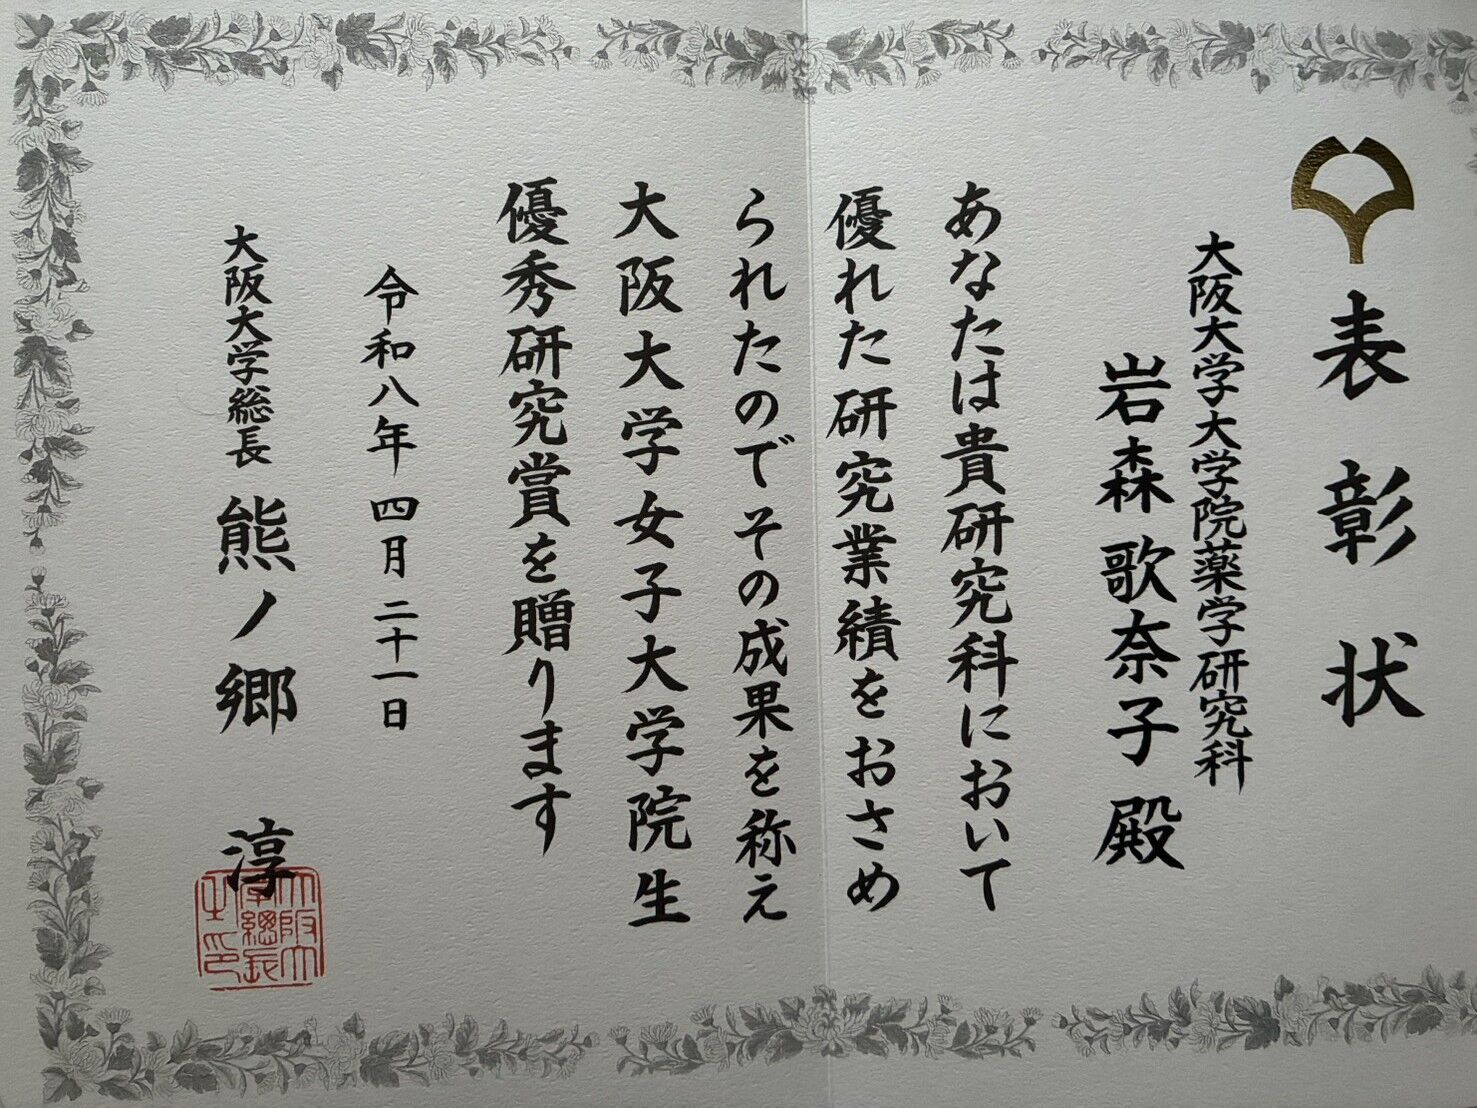 表彰状
大阪大学大学院薬学研究科
岩森歌奈子殿
あなたは貴研究科において
優れた研究業績をおさめ
られたのでその成果を称え
大阪大学女子大学院生
優秀研究賞を贈ります
令和八年四月二十一日
大阪大学総長 熊ノ郷 淳
大阪大
学總長
之印